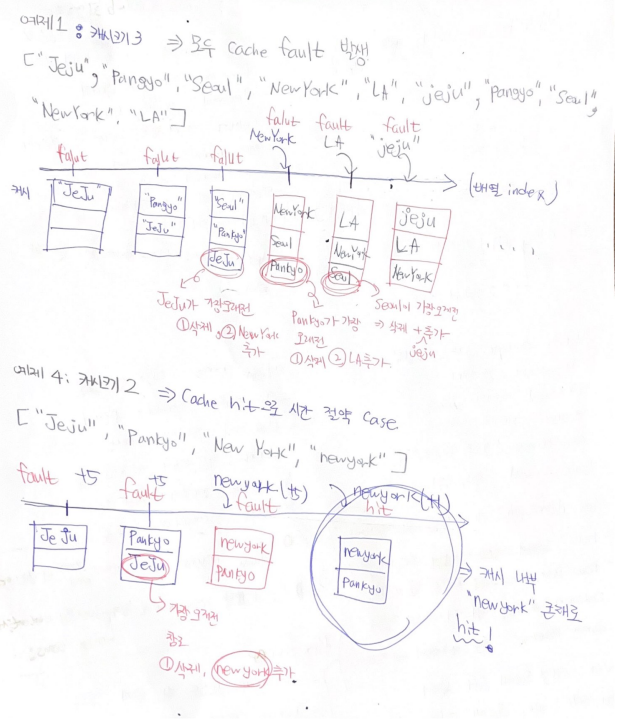 예제1 : 캐시크기 3 ⇒ 모두 cache fault 발생
["Jeju", "Pangyo", "Seoul", "NewYork", "LA", "jeju", "Pangyo", "Seoul",
"NewYork", "LA"]
falut fault fault
NewYork LA "jeju"
falut falut falut
(배열 index)
캐시
"JeJu" "Pangyo" "Seoul" NewYork LA jeju
"JeJu" "Pankyo" Seoul NewYork LA
JeJu Pankyo Seoul NewYork
. . . .
JeJu가 가장 오래전
①삭제, ②NewYork
추가
Pankyo가 가장
오래전
①삭제 ②LA추가
Seoul이 가장 오래전
⇒ 삭제 + 추가
jeju
예제 4: 캐시크기 2 ⇒ Cache hit으로 시간 절약 case
["Jeju", "Pankyo", "New York", "newyork"]
fault +5 fault +5 newyork(+5) newyork(+1)
fault hit
JeJu Pankyo newyork newyork
JeJu Pankyo Pankyo
→ 캐시 내부
"newyork" 존재로
hit!
→ 가장 오래전
참조
①삭제, newyork 추가